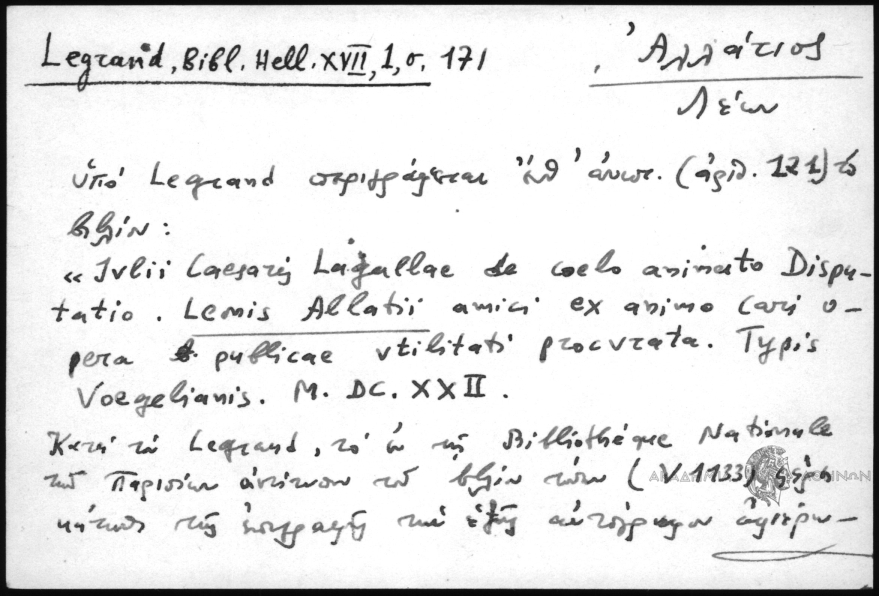 Legrand, Bibl. Hell. XVII, 1, σ. 171
Ἀλλάτιος
Λέων
ὑπό Legrand περιγράφεται ὑπ' ἀριθ. (ἀριθ. 121) τὸ
βιβλίον:
«Ivlii Caesaris Lagallae de coelo animato Dispu-
tatio. Leonis Allatii amici ex animo cari o-
pera publicae vtilitati procvrata. Typis
Voegelianis. M. DC. XXII.
Κατὰ τὸν Legrand, τὸ ἐν τῇ Bibliothèque Nationale
τῶν Παρισίων ἀντίτυπον τοῦ βιβλίου τούτου (V 1133) φέρει
κάτωθι τῆς ἐπιγραφῆς τὴν ἑξῆς αὐτόγραφον ἀφιέρω-
ΑΚΑΔΗΜΙΑ ΑΘΗΝΩΝ